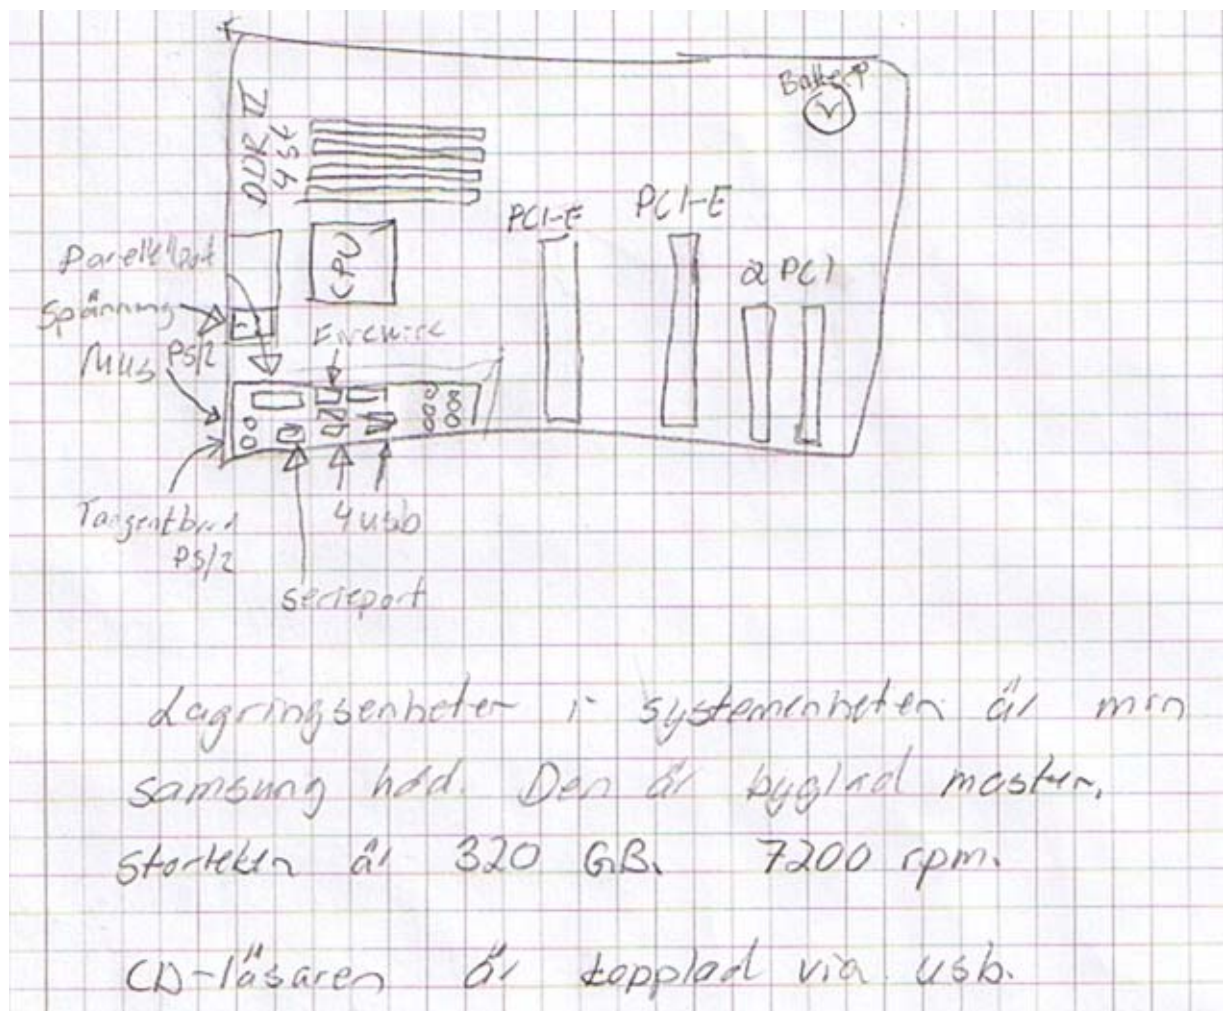 Batteri
DDR II
4 st
PCI-E
PCI-E
2 PCI
CPU
Parellellport
Spänning
Mus PS/2
Firewire
Tangentbord
PS/2
4 usb
serieport
Lagringsenheten i systemenheten är min
samsung hdd. Den är byglad master.
storleken är 320 GB. 7200 rpm.
CD-läsaren är kopplad via usb.